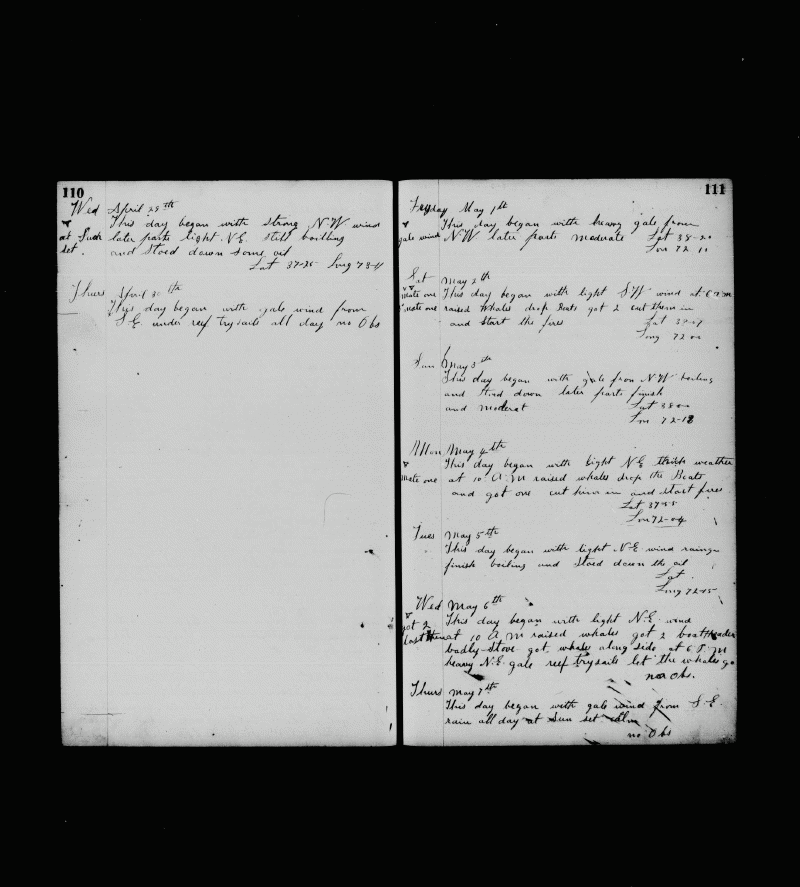 110
Wed April 29th
This day began with strong N.W. wind
at Sun later parts light N.E. still boilling
set. and Stoed down some oil
Lat 37-25 Long 73-11
Thurs April 30th
This day began with gale wind from
S.E. under reef trysails all day no Obs
111
Fryday May 1st
This day began with heavy gale from
gale wind N.W. later parts moderate Lat 38-20
Lon 72 10
Sat May 2th
mate one This day began with light S.W. wind at 6 P.M
mate one raised whales drop Boats got 2 cut them in
and start the fires Lat
Long 72 00
Sun May 3th
This day began with gale from N.W. boiling
and Stoed down later parts finish
and moderat Lat 38 00
Lon 72-18
Mon May 4th
This day began with light N.E. thick weather
mate one at 10 A.M raised whales drop the Boats
and got one cut him in and start fires
Lat 37-55
Lon 72-04
Tues May 5th
This day began with light N.E. wind raining
finish boiling and Stoed down the oil
Lat.
Long 72-15
Wed May 6th
This day began with light N.E. wind
got 2
lost them at 10 A M raised whales got 2 boat header
badly stove got whales along side at 6 P.M
heavy N.E. gale reef trysails let the whales go
no Obs.
Thurs May 7th
This day began with gale wind from S.E.
rain all day at Sun set calm
no Obs